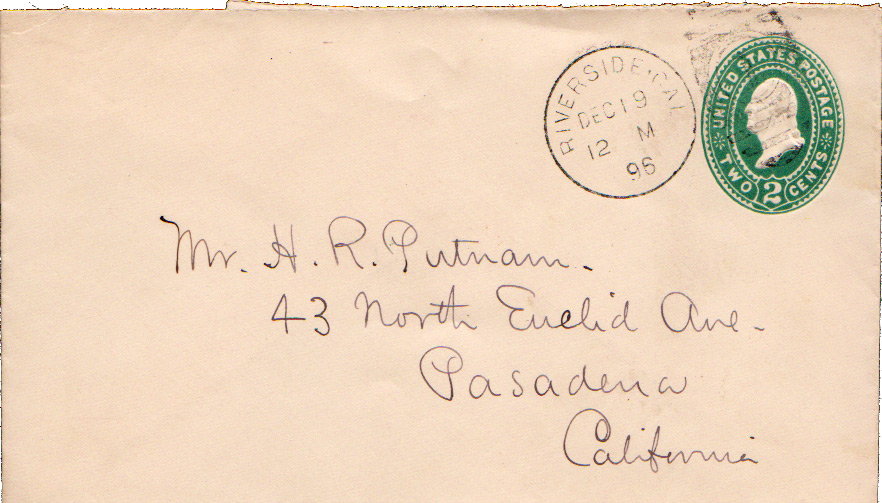 RIVERSIDE, CAL.
DEC 19
12 M
96
UNITED STATES POSTAGE
TWO 2 CENTS
Mr. H. R. Putnam.
43 North Euclid Ave.
Pasadena
California